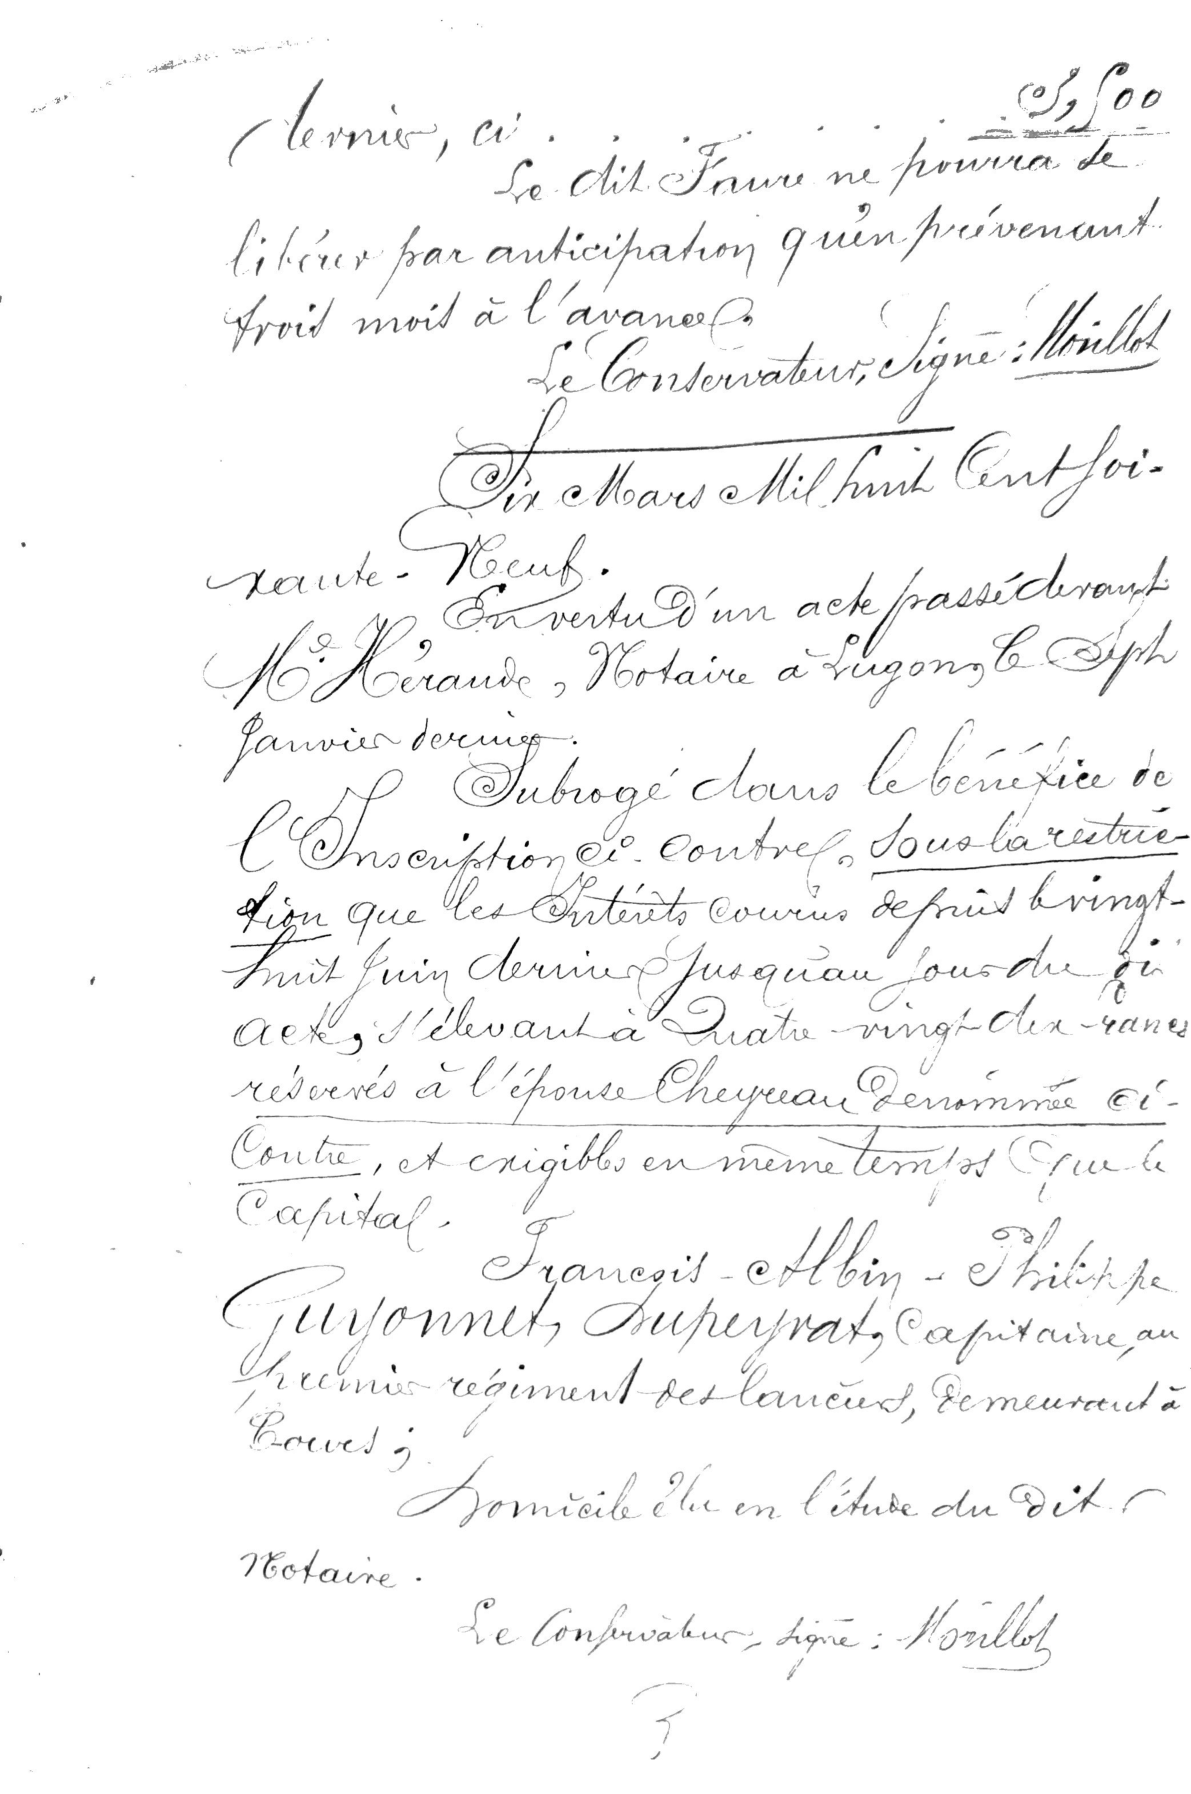 dernier, ci . . . . . . . . 3,500
Le dit Faure ne pourra se
libérer par anticipation qu'en prévenant
trois mois à l'avance.
Le Conservateur, Signé : Mouillot
Six Mars Mil huit Cent Soi-
xante-Neuf.
En vertu d'un acte passé devant
Me Héraude, Notaire à Luçon, le Sept
Janvier dernier.
Subrogé dans le bénéfice de
l'Inscription ci-contre, sous la restric-
tion que les Intérêts courus depuis le vingt-
huit Juin dernier Jusqu'au Jour du dit
acte, s'élevant à Quatre-vingt-dix francs
réservés à l'épouse Cheyreau dénommée ci-
Contre, et exigibles en même temps que le
Capital.
François-Albin-Philippe
Guyonnet, Dupeyrat, Capitaine, au
premier régiment des lanciers, demeurant à
Tours ;
Domicile élu en l'étude du dit
Notaire.
Le Conservateur, signé : Mouillot